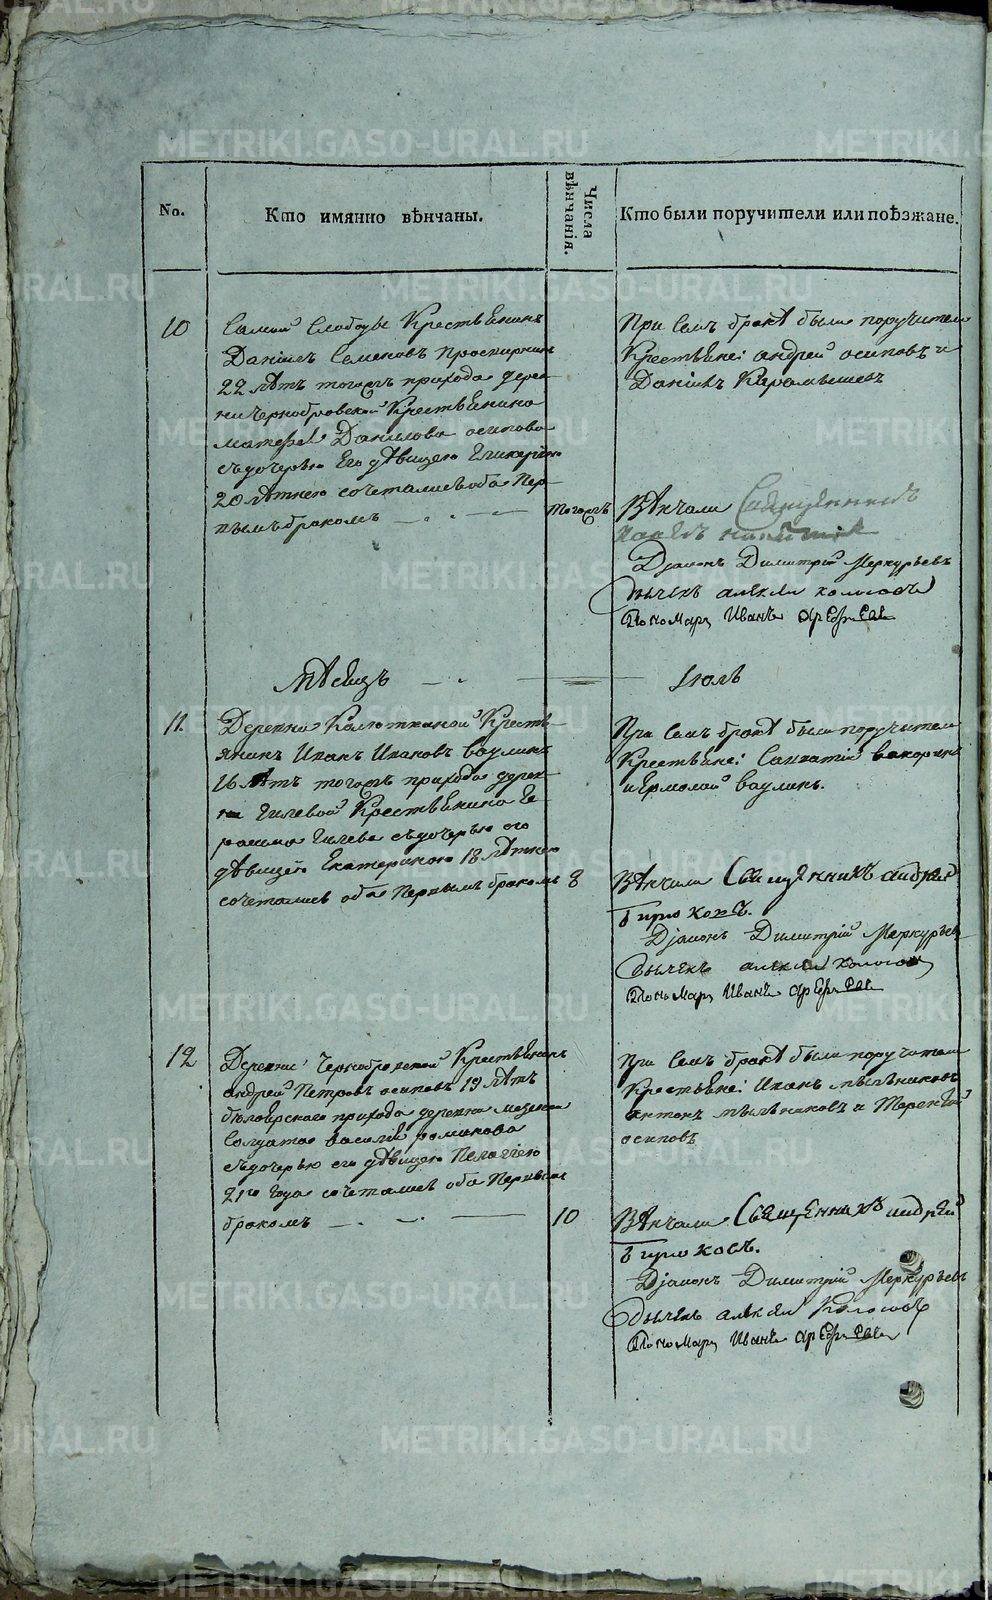 No.
Кто имянно вѣнчаны.
Числа вѣнчанія.
Кто были поручители или поѣзжане.
10
Самой Слободы Крестьянинъ
Данiилъ Семеновъ Проскирнинъ
22 лѣтъ тогожъ прихода дере-
ни Чернобровской Крестьянина
Матфея Данилова осипова
съдочерью Его дѣвицею Гликерiею
20 лѣтнею сочетались оба Пер-
вымъ бракомъ
тогожъ
При Семъ бракѣ были поручители
Крестьяне: андрей осиповъ и
Данiилъ Карамышевъ
Вѣнчали Священникъ
Дiаконъ Димитрiй Меркурьевъ
дьячекъ алексѣй колосовъ
Пономарь Иванъ
Мѣсяцъ
Iюль
11.
Деревни Калюткиной Кресть-
янинъ Иванъ Ивановъ ваулинъ
16 лѣтъ тогожъ прихода дерев-
ни Гилевой Крестьянина Ге-
расима Гилева съдочерью его
дѣвицею Екатериною 18 лѣтнею
сочетались оба Первымъ бракомъ
8
При Семъ бракѣ были поручители
Крестьяне: Савватiй вакоринъ
и Ермолай ваулинъ.
Вѣнчали Священникъ андрей
Бирюковъ.
Дiаконъ Димитрiй Меркурьевъ
дьячекъ алексѣй колосовъ
Пономарь Иванъ
12
Деревни Чернобровской Крестьянинъ
андрей Петровъ осиповъ 19 лѣтъ
бѣлоярскаго прихода деревни мезенки
Солдата василiя романова
съдочерью его дѣвицею Пелагiею
21го года сочетались оба Первымъ
бракомъ
10
При Семъ бракѣ были поручители
Крестьяне: Иванъ мѣльниковъ
антонъ мѣльниковъ и Тереньтiй
осиповъ
Вѣнчали Священникъ андрей
Бирюковъ.
Дiаконъ Димитрiй Меркурьевъ
дьячекъ алексѣй Колосовъ
Пономарь Иванъ
METRIKI.GASO-URAL.RU